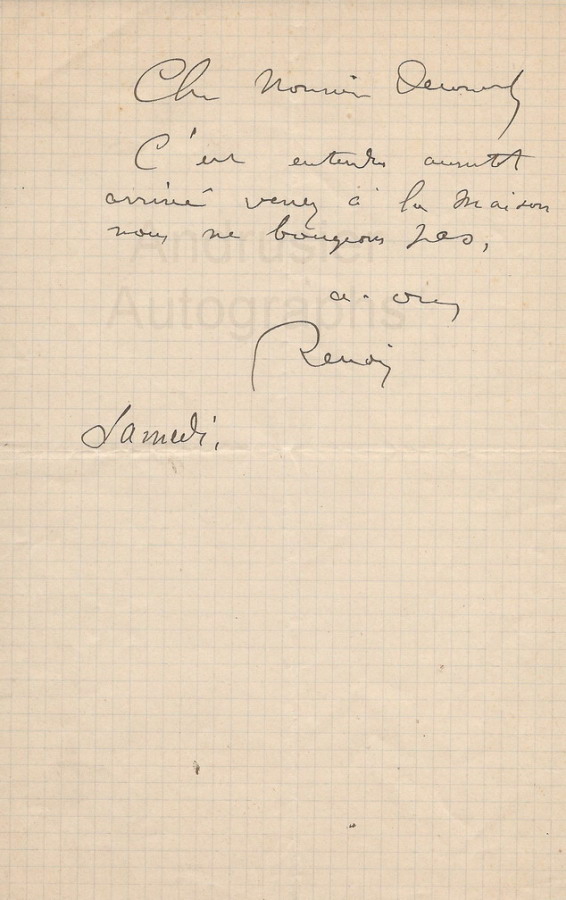 Cher Monsieur
C'est entendu aussitôt
arrivé venez à la maison
nous ne bougeons pas,
a. vous
Renoir
Samedi,
Andrusier
Autographs